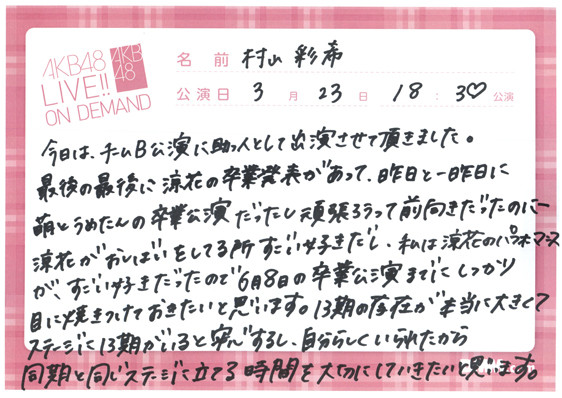 AKB48
LIVE!!
ON DEMAND
AKB
48
名前 村山 彩希
公演日 3月23日 18:30公演
今日は、チームB公演に助っ人として出演させて頂きました。
最後の最後に涼花の卒業発表があって、昨日と一昨日に
萌とうめたんの卒業公演だったし頑張ろうって前向きだったのにー
涼花がおしばいをしてる所すごい好きだし、私は涼花のパフォーマンス
が、すごい好きだったので6月8日の卒業公演までにしっかり
目に焼きつけておきたいと思います。13期の存在が本当に大きくて
ステージに13期がいると安心するし、自分らしくいられたから
同期と同じステージに立てる時間を大切にしていきたいと思います。